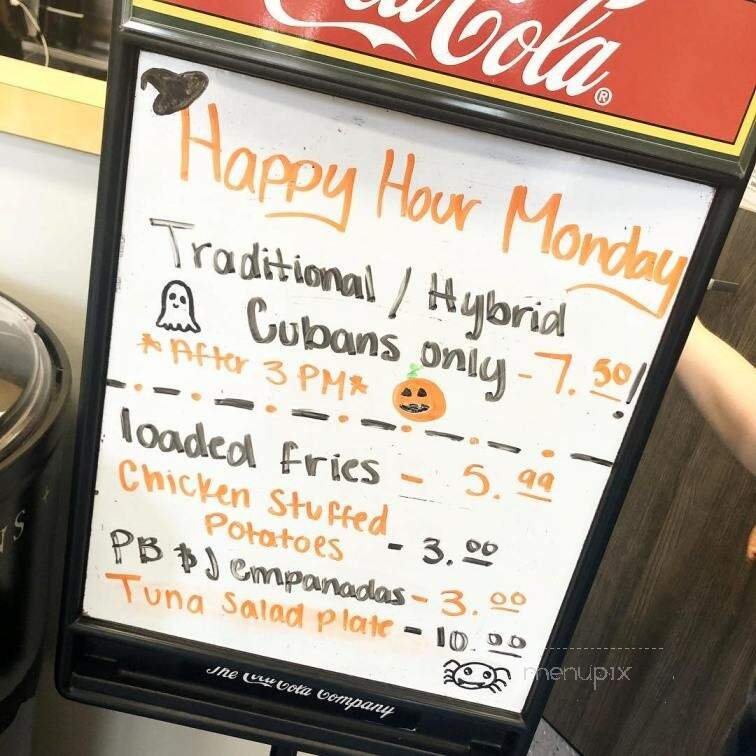 Coca-Cola®
Happy Hour Monday
Traditional / Hybrid
Cubans only - 7.50!
* After 3 PM *
loaded fries - 5.99
Chicken Stuffed
Potatoes - 3.00
PB & J empanadas - 3.00
Tuna Salad Plate - 10.00
The Coca-Cola Company
menupix